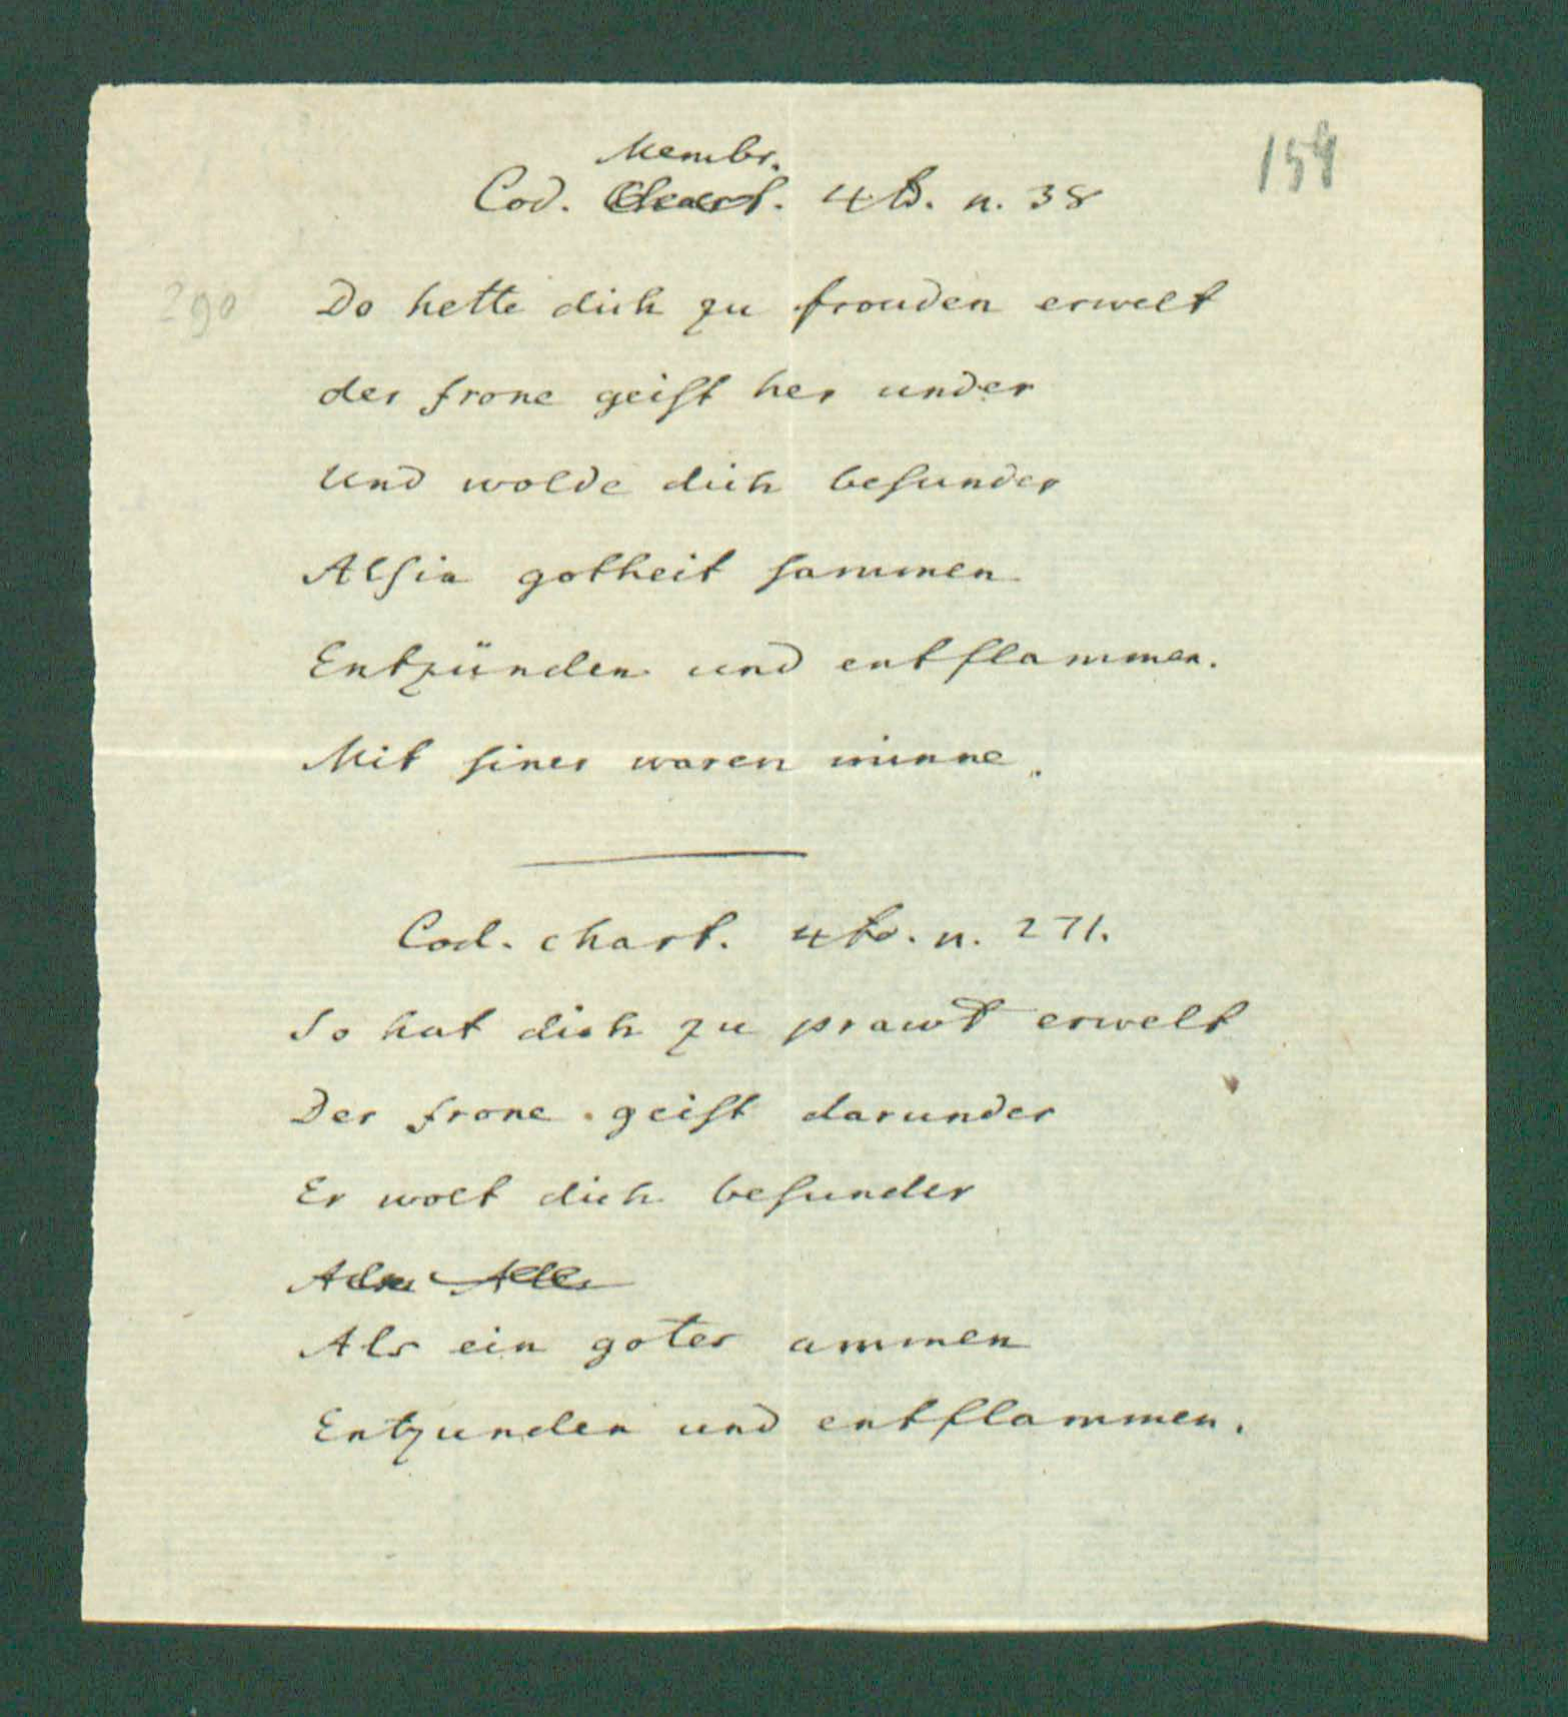 159
Membr.
Cod. Chart. 4to. n. 38
290 Do hette dich zu frouden erwelt
der frone geiſt her under
Und wolde dich beſunder
Alſin gotheit ſammen
Entzünden und entflammen.
Mit ſiner waren minne.
Cod. chart. 4to. n. 271.
So hat dich zu prawt erwelt
Der frone geiſt darunder
Er wolt dich beſunder
Als ein goter ammen
Entzunden und entflammen.